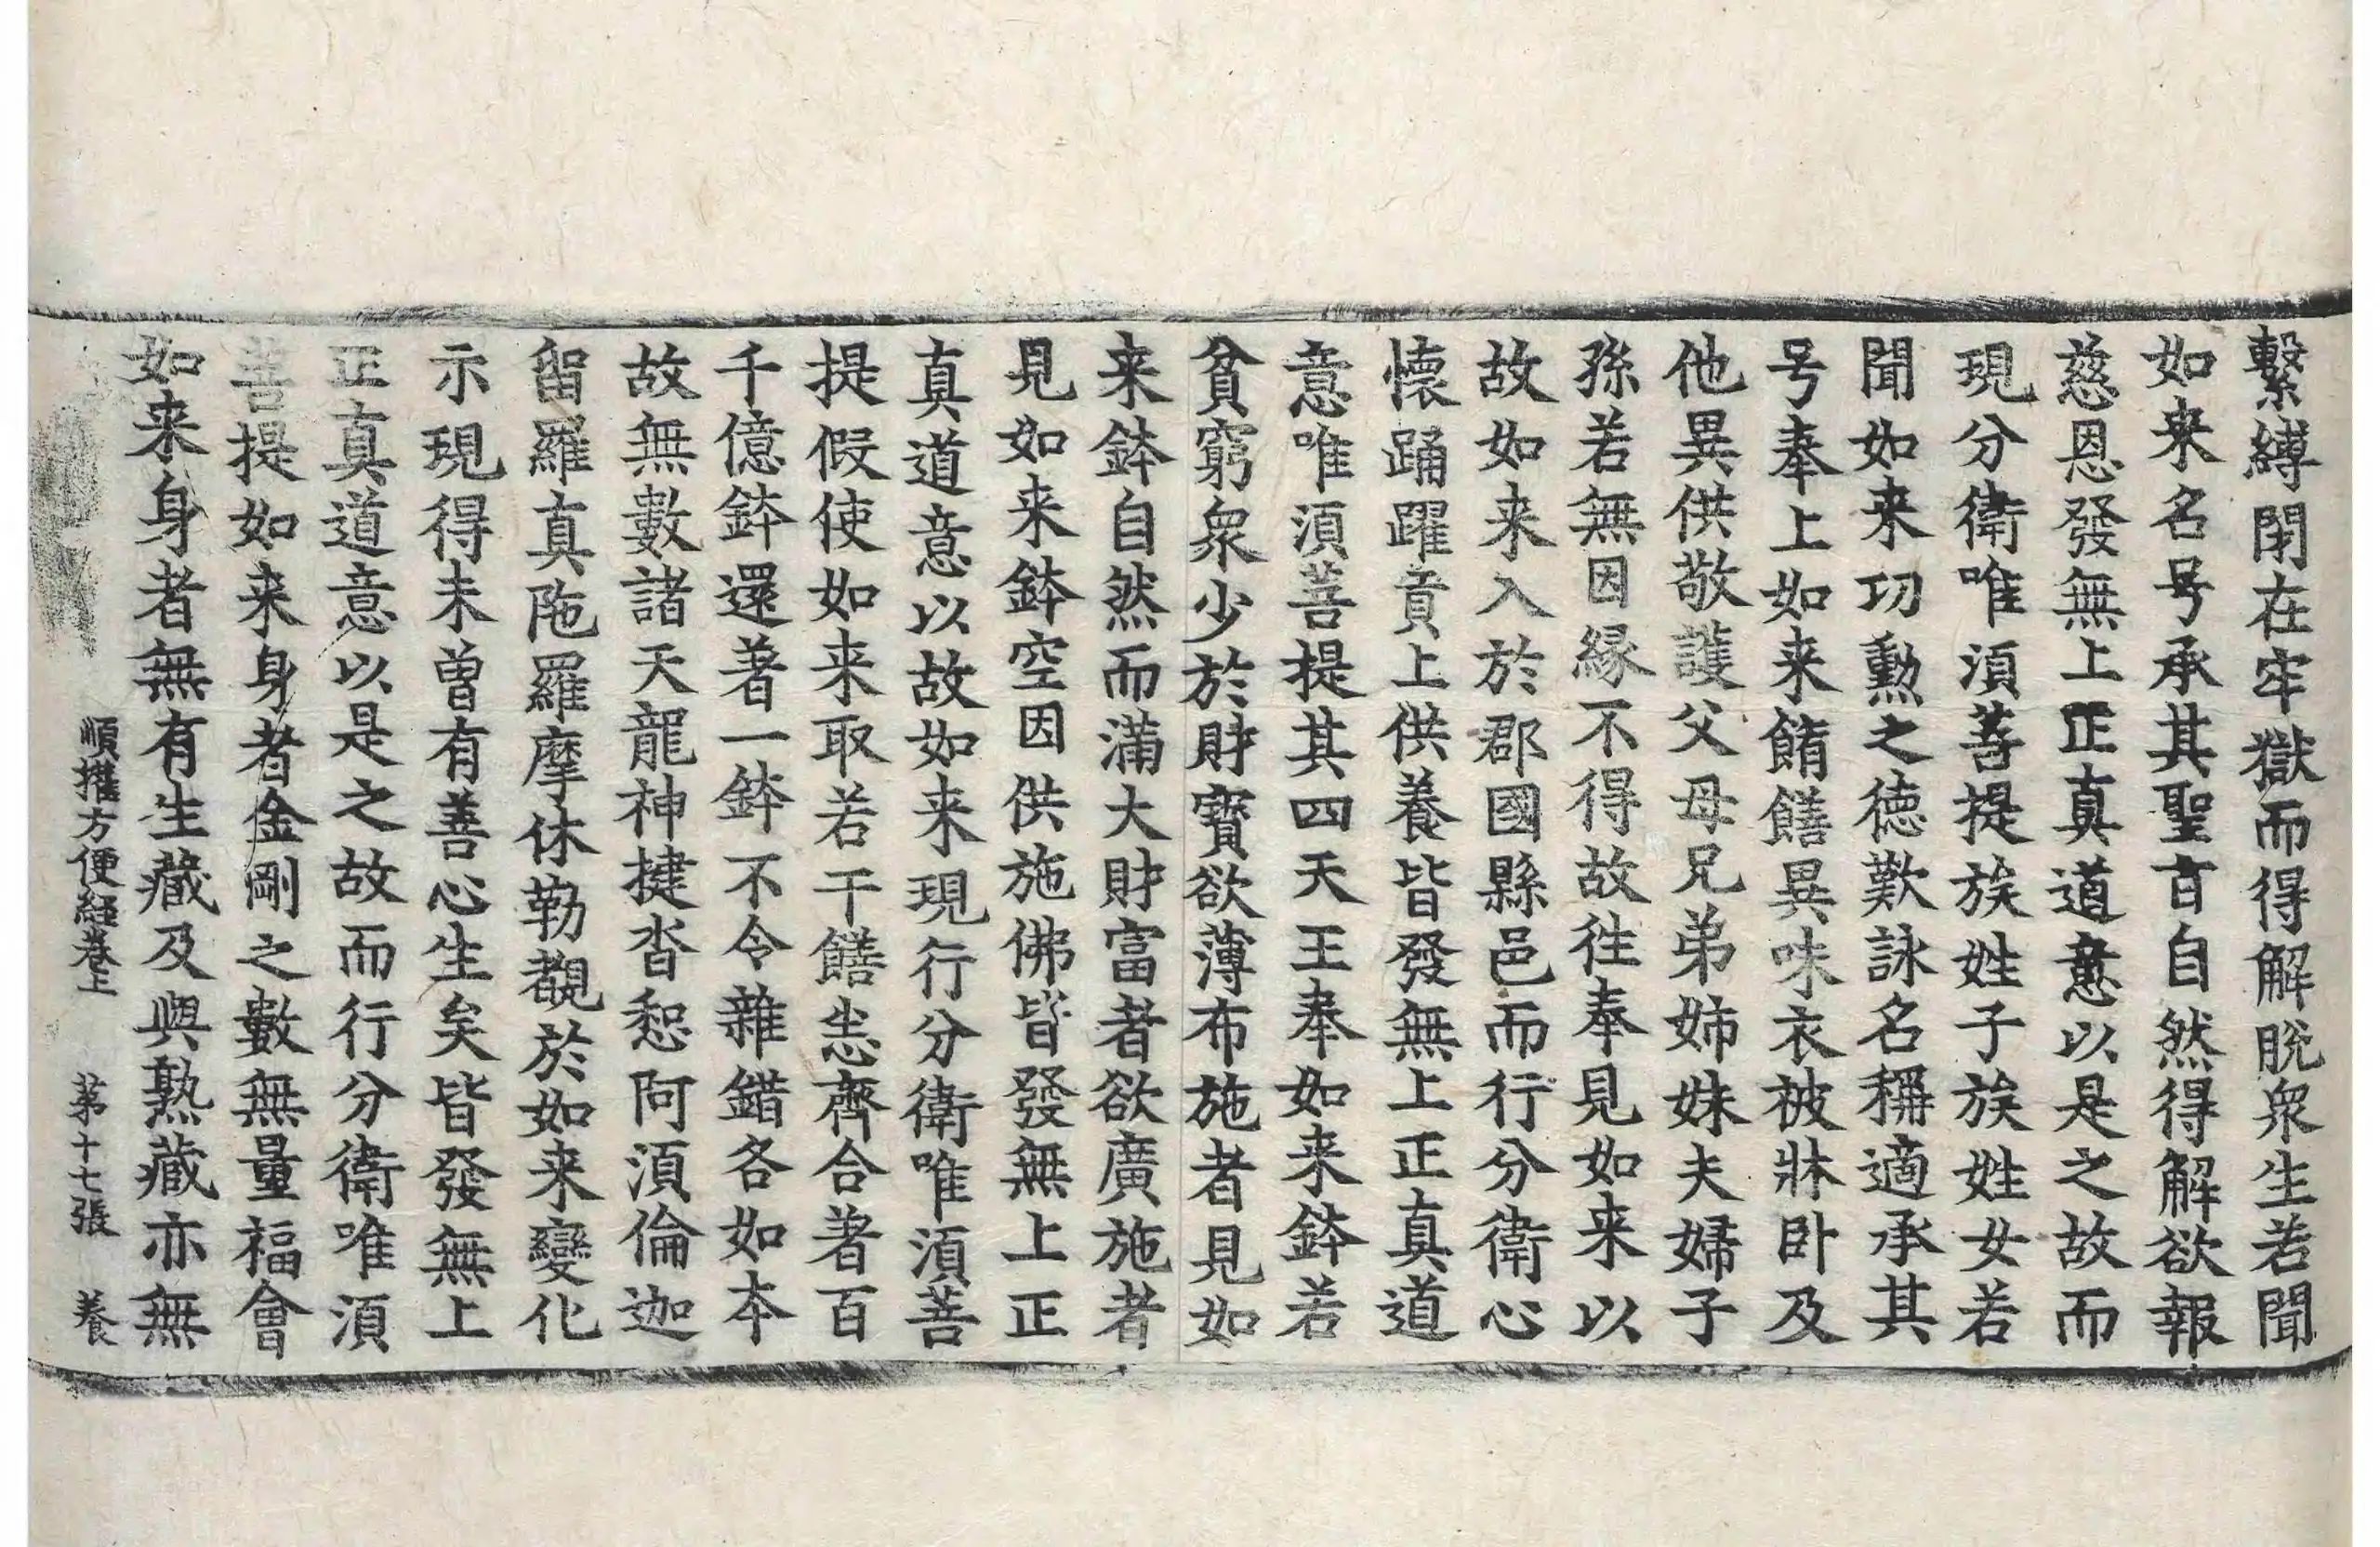 繫縛閉在牢獄而得解脫衆生若聞
如来名号承其聖音自然得解欲報
慈恩發無上正真道意以是之故而
現分衛唯湏菩提族姓子族姓女若
聞如来㓛勳之德歎詠名稱適承其
号奉上如来餚饍異味衣被牀卧及
他異供敬護父母兄弟姉妹夫婦子
孫若無因縁不得故徃奉見如来以
故如来入於郡國縣邑而行分衛心
懷踊躍貢上供養皆發無上正真道
意唯湏菩提其四天王奉如来鉢若
貧窮衆少於財寶欲薄布施者見如
来鉢自然而滿大財富者欲廣施者
見如来鉢空因供施佛皆發無上正
真道意以故如来現行分衛唯湏菩
提假使如来取若干饍悉齊合著百
千億鉢還著一鉢不令雜錯各如本
故無數諸天龍神揵沓惒阿湏倫迦
留羅真陁羅摩休勒覩於如来變化
示現得未曾有善心生矣皆發無上
正真道意以是之故而行分衛唯湏
菩提如来身者金剛之數無量福會
如来身者無有生藏及與熟藏亦無
順權方便經卷上　第十七張　養